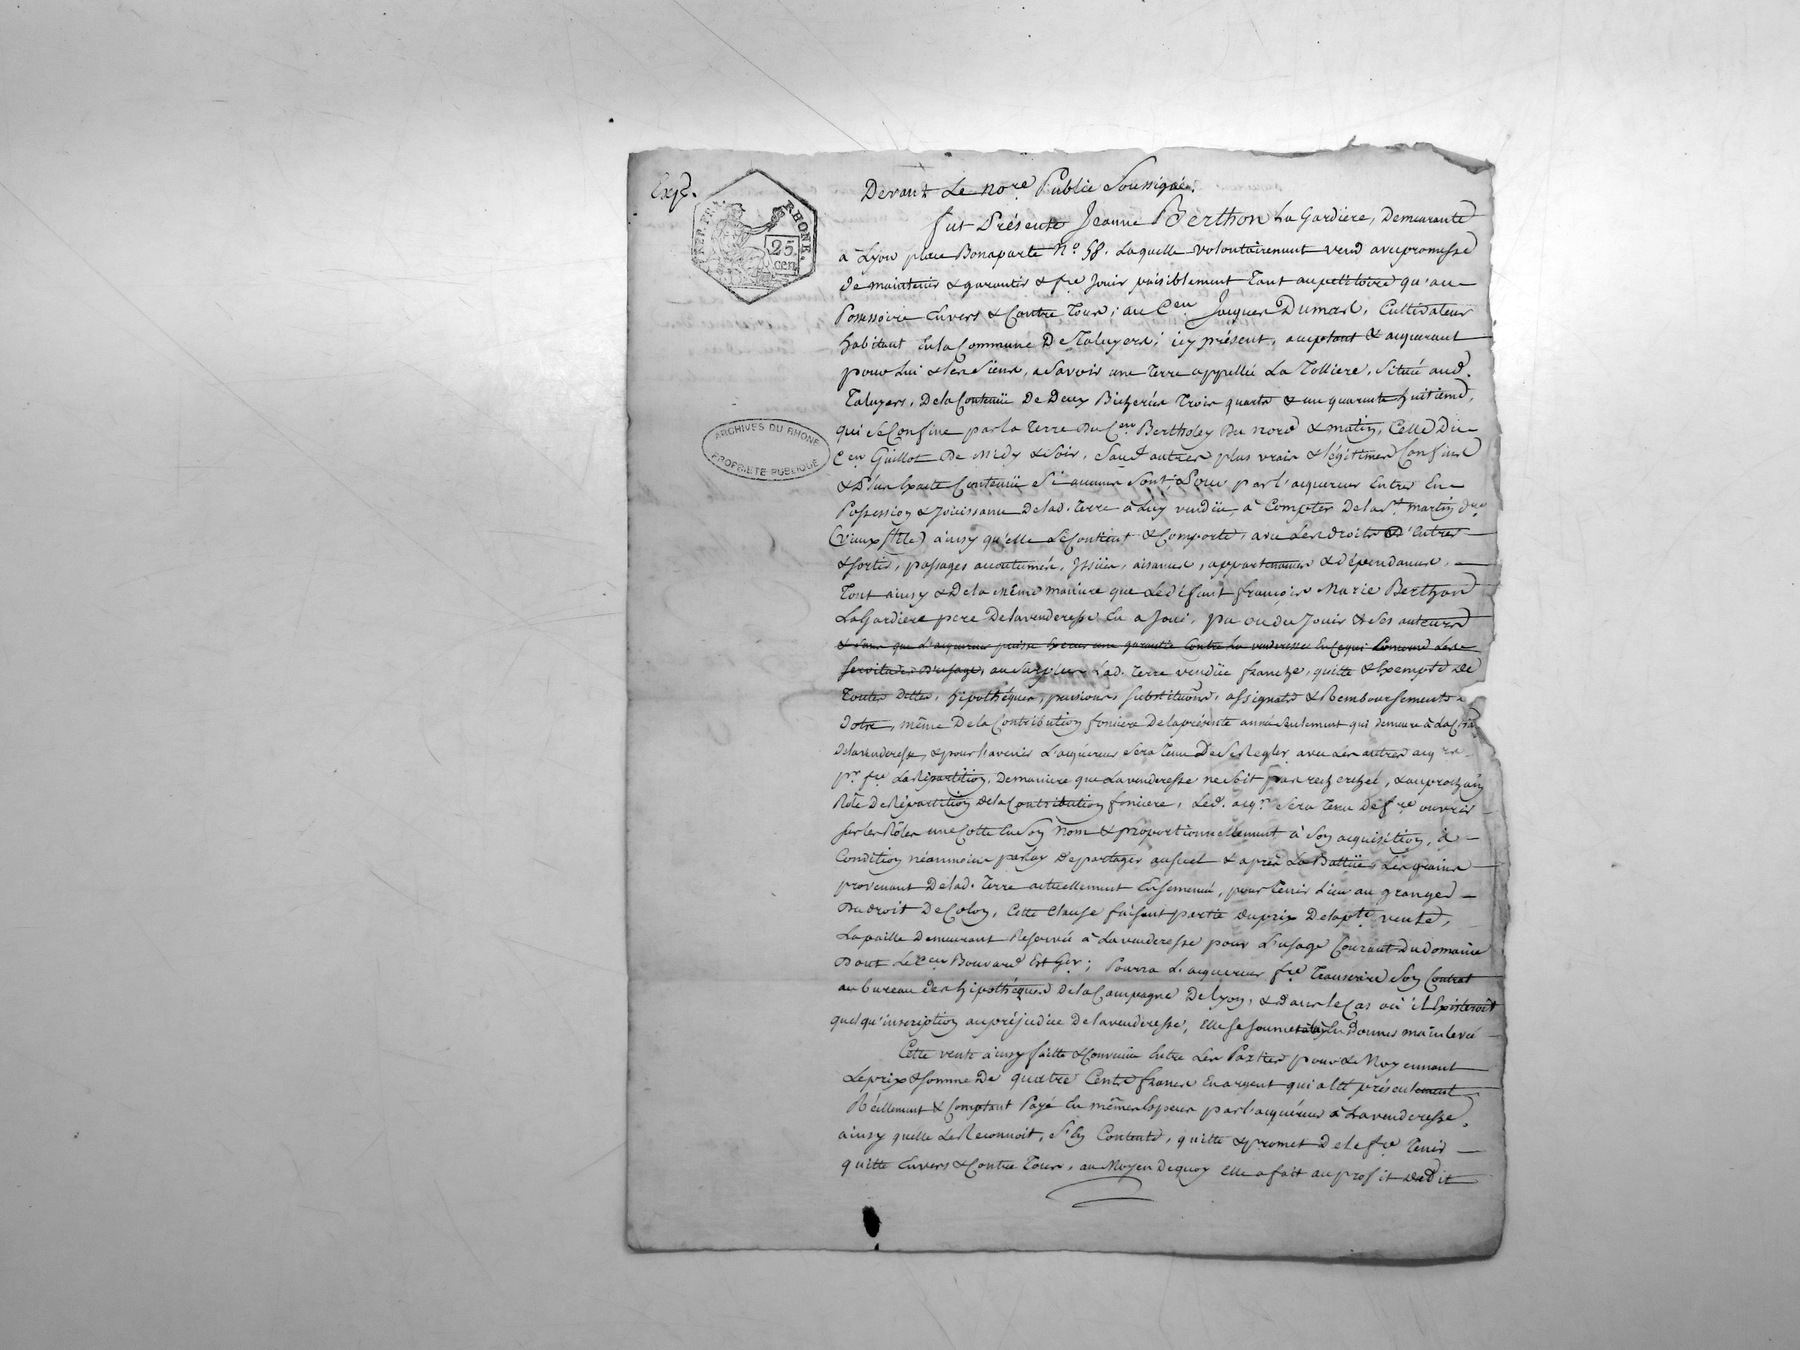 Exp.
REP. FRA.
RHONE.
25
cen
ARCHIVES DU RHONE
PROPRIETE PUBLIQUE
Devant Le nore Public Soussigné.
fut Présente Jeanne Berthon La Gardiere, Demeurante
à Lyon place Bonaparte N° 58. Laquelle volontairement vend avec promesse
de maintenir & garantir & fre Jouir paisiblement Tant au petitoire qu'au
Possessoire Envers & Contre Tous; au Cen Jacques Dumas, Cultivateur
habitant En la Commune De Taluyers; icy présent, acceptant & acquerant
pour Lui & les Siens, a Savoir une Terre appellée La Tolliere, Située aud.
Taluyers, De la Contenüe De Deux Bicherées Trois quarts & un quarante huitieme,
qui se Confine par la Terre Du Cen Bertholey Du nord & matin, Celle Du
Cen Guillot De Midy & Soir, Sauf autres plus vrais & légitimes Confins
& Plus Exacte Contenüe Si aucuns Sont, Pour par l'acquereur Entrer En
Possession & Jouissance De lad. Terre à Luy vendüe, à Compter De la St. martin
(vieux stile) ainsy qu'elle Se Contient & Comporte, avec Les droits D'Entrée
& Sortie, passages accoutumés, Issües, aisances, appartenances & dépendances,
Tout ainsy & De la Même maniere que Le défunt françois Marie Berthon
La Gardiere pere De la venderesse En a Joui, pu ou du Jouir & Ses auteurs
& Sans que L'acquereur puisse Exercer une garantie Contre La venderesse En Ce qui Concerne Les
Servitudes D'usage, au Surplus Lad. Terre vendüe franche, quitte & Exempte de
Toutes Dettes, hipothéques, pensions, Substitutions, assignats & Remboursements
Dotre, même De la Contribution fonciere De la présente année Seulement qui demeure à La
De la venderesse, & pour L'avenir L'acquereur Sera Tenu De Se Regler avec Les autres
pr. fre La Répartition, De maniere que La venderesse ne Soit pas recherchée, & au prochain
Role De Répartition de la Contribution fonciere, Led. acqr Sera Tenu De fre ouvrir
Sur les Roles une Cotte En Son Nom & proportionnellement à Son acquisition, à
Condition néanmoins par Luy De partager au & après La Battüe, Les grains
provenant De lad. Terre actuellement Ensemencée, pour Tenir Lieu au granger
Du droit De Colon, Cette Clause faisant partie du prix De la pte vente,
La paille Demeurant Reservée à La venderesse pour L'usage Courant Du Domaine
Dont Le Cen Bouvard Est Ger; Pourra L'acquereur fre Transcrire Son Contrat
au bureau des hipothéques de la Campagne De Lyon, & dans le Cas où il Existeroit
quelqu'inscription au préjudice De la venderesse, Elle Se Soumet à En Donner mainlevée
Cette vente ainsy faitte & Convenüe Entre Les Parties pour & Moyennant
Le prix & Somme De quatre Cents francs En argent qui a Eté présentement
Réellement & Comptant Payé En mêmes Especes par l'acquéreur à La venderesse,
ainsy quelle Le Reconnoit, S'En Contente, quitte & promet De le fre Tenir
quitte Envers & Contre Tous, au Moyen De quoy Elle a fait au profit dudit